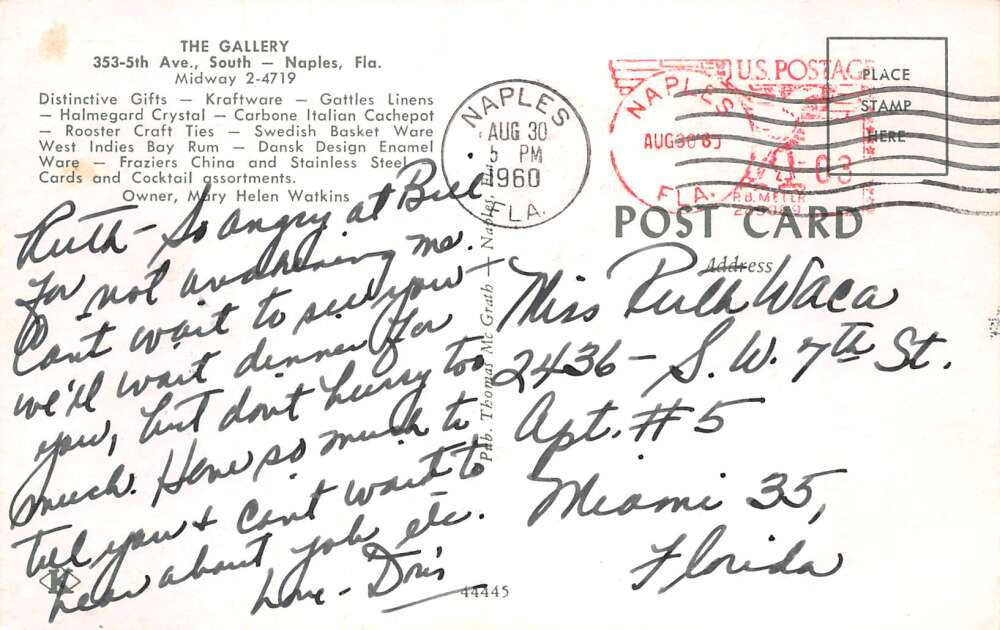 THE GALLERY
353-5th Ave., South — Naples, Fla.
Midway 2-4719
Distinctive Gifts — Kraftware — Gattles Linens
— Halmegard Crystal — Carbone Italian Cachepot
— Rooster Craft Ties — Swedish Basket Ware
West Indies Bay Rum — Dansk Design Enamel
Ware — Fraziers China and Stainless Steel
Cards and Cocktail assortments.
Owner, Mary Helen Watkins
Ruth — So angry at Bill
for not awakening me.
Cant wait to see you —
we'll wait dinner for
you, but dont hurry too
much. Have so much to
tell you & cant wait to
hear about job etc.
Love — Doris
K
44445
Pub. Thomas Mc Grath — Naples, Fla.
NAPLES
AUG 30
5 PM
1960
FLA.
NAPLES
AUG 30
FLA.
U.S. POSTAGE
03
P.B. METER
PLACE
STAMP
HERE
POST CARD
Address
Miss Ruth Waca
2436 — S. W. 7th St.
Apt. #5
Miami 35,
Florida